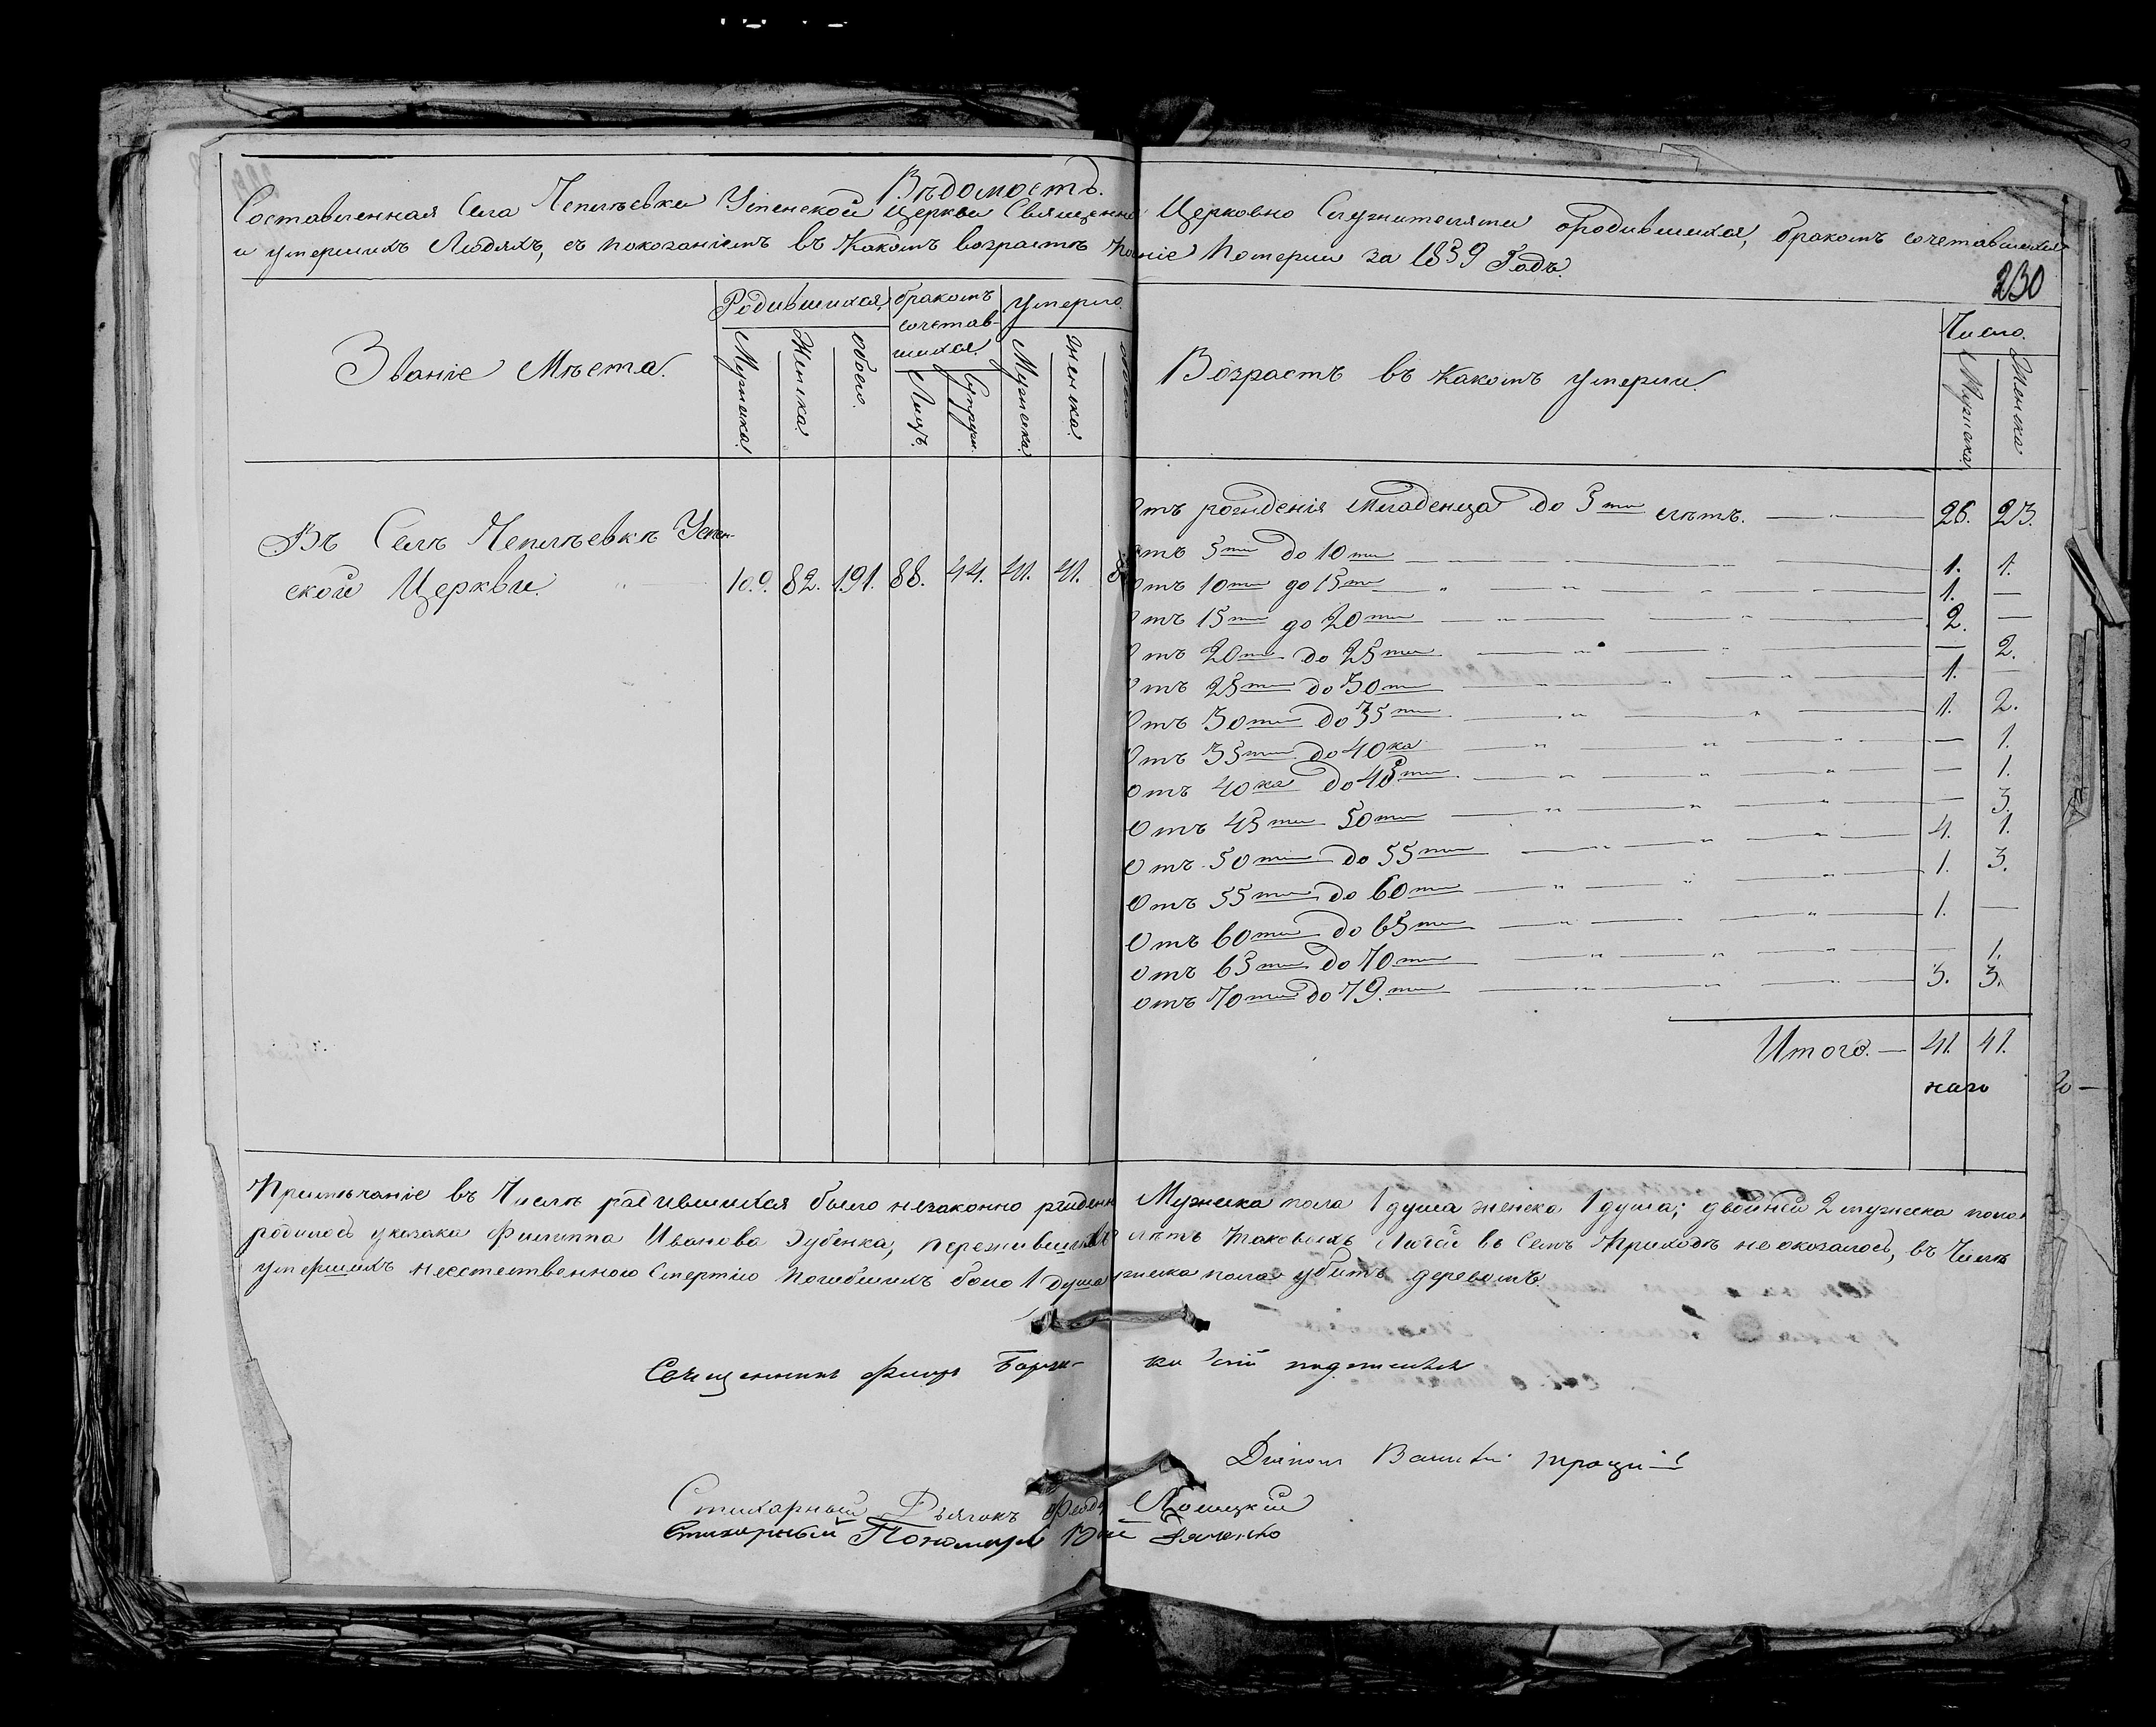 Вѣдомость.
Составленная Села Чепилѣевки Успенской Церкви Священно Церковно Служителями о родившихся, бракомъ сочетавшихся
и умершихъ Людяхъ, съ показаніемъ въ какомъ возрастѣ Померли за 1839 Годъ.
230
Званіе Мѣста.
Родившихся
бракомъ сочетавшихся.
Умерло.
Мужеска.
Женска.
обоего.
Лицъ.
Супруж.
Мужеска
женска
Возрастъ въ какомъ умерли.
Число.
Мужеска
Женска
Въ Селѣ Чепилѣевкѣ Успен-
ской Церкви. 109. 82. 191. 88. 44. 41. 41. 8
Отъ рожденія младенца до 5ти лѣтъ. 26. 23.
Отъ 5ти до 10ти 1. 1.
Отъ 10ти до 15ти 1. —
Отъ 15ти до 20ти 2. —
Отъ 20ти до 25ти — 2.
Отъ 25ти до 30ти 1. —
Отъ 30ти до 35ти 1. 2.
Отъ 35ти до 40ка — 1.
Отъ 40ка до 45ти — 1.
Отъ 45ти 50ти — 3.
Отъ 50ти до 55ти 4. 1.
Отъ 55ти до 60ти 1. 3.
Отъ 60ти до 65ти 1. —
Отъ 65ти до 70ти — 1.
Отъ 70ти до 79.ти 3. 3.
Итого. — 41. 41.
наго
Примѣчаніе въ Числѣ родившихся было незаконно рожден Мужеска пола 1 душа женска 1 душа; двойней 2 мужеска пола
родилось у козака Филиппа Иванова Зубенка, пережившихъ лѣтъ таковыхъ Людей въ семъ Приходѣ не оказалось, въ Числѣ
умершихъ неестественною Смертію погибшихъ было 1 душа мужеска пола убитъ деревомъ
Священникъ
Стихарный Дьячокъ Лонцкій
Стихарный Пономарь Дяченко